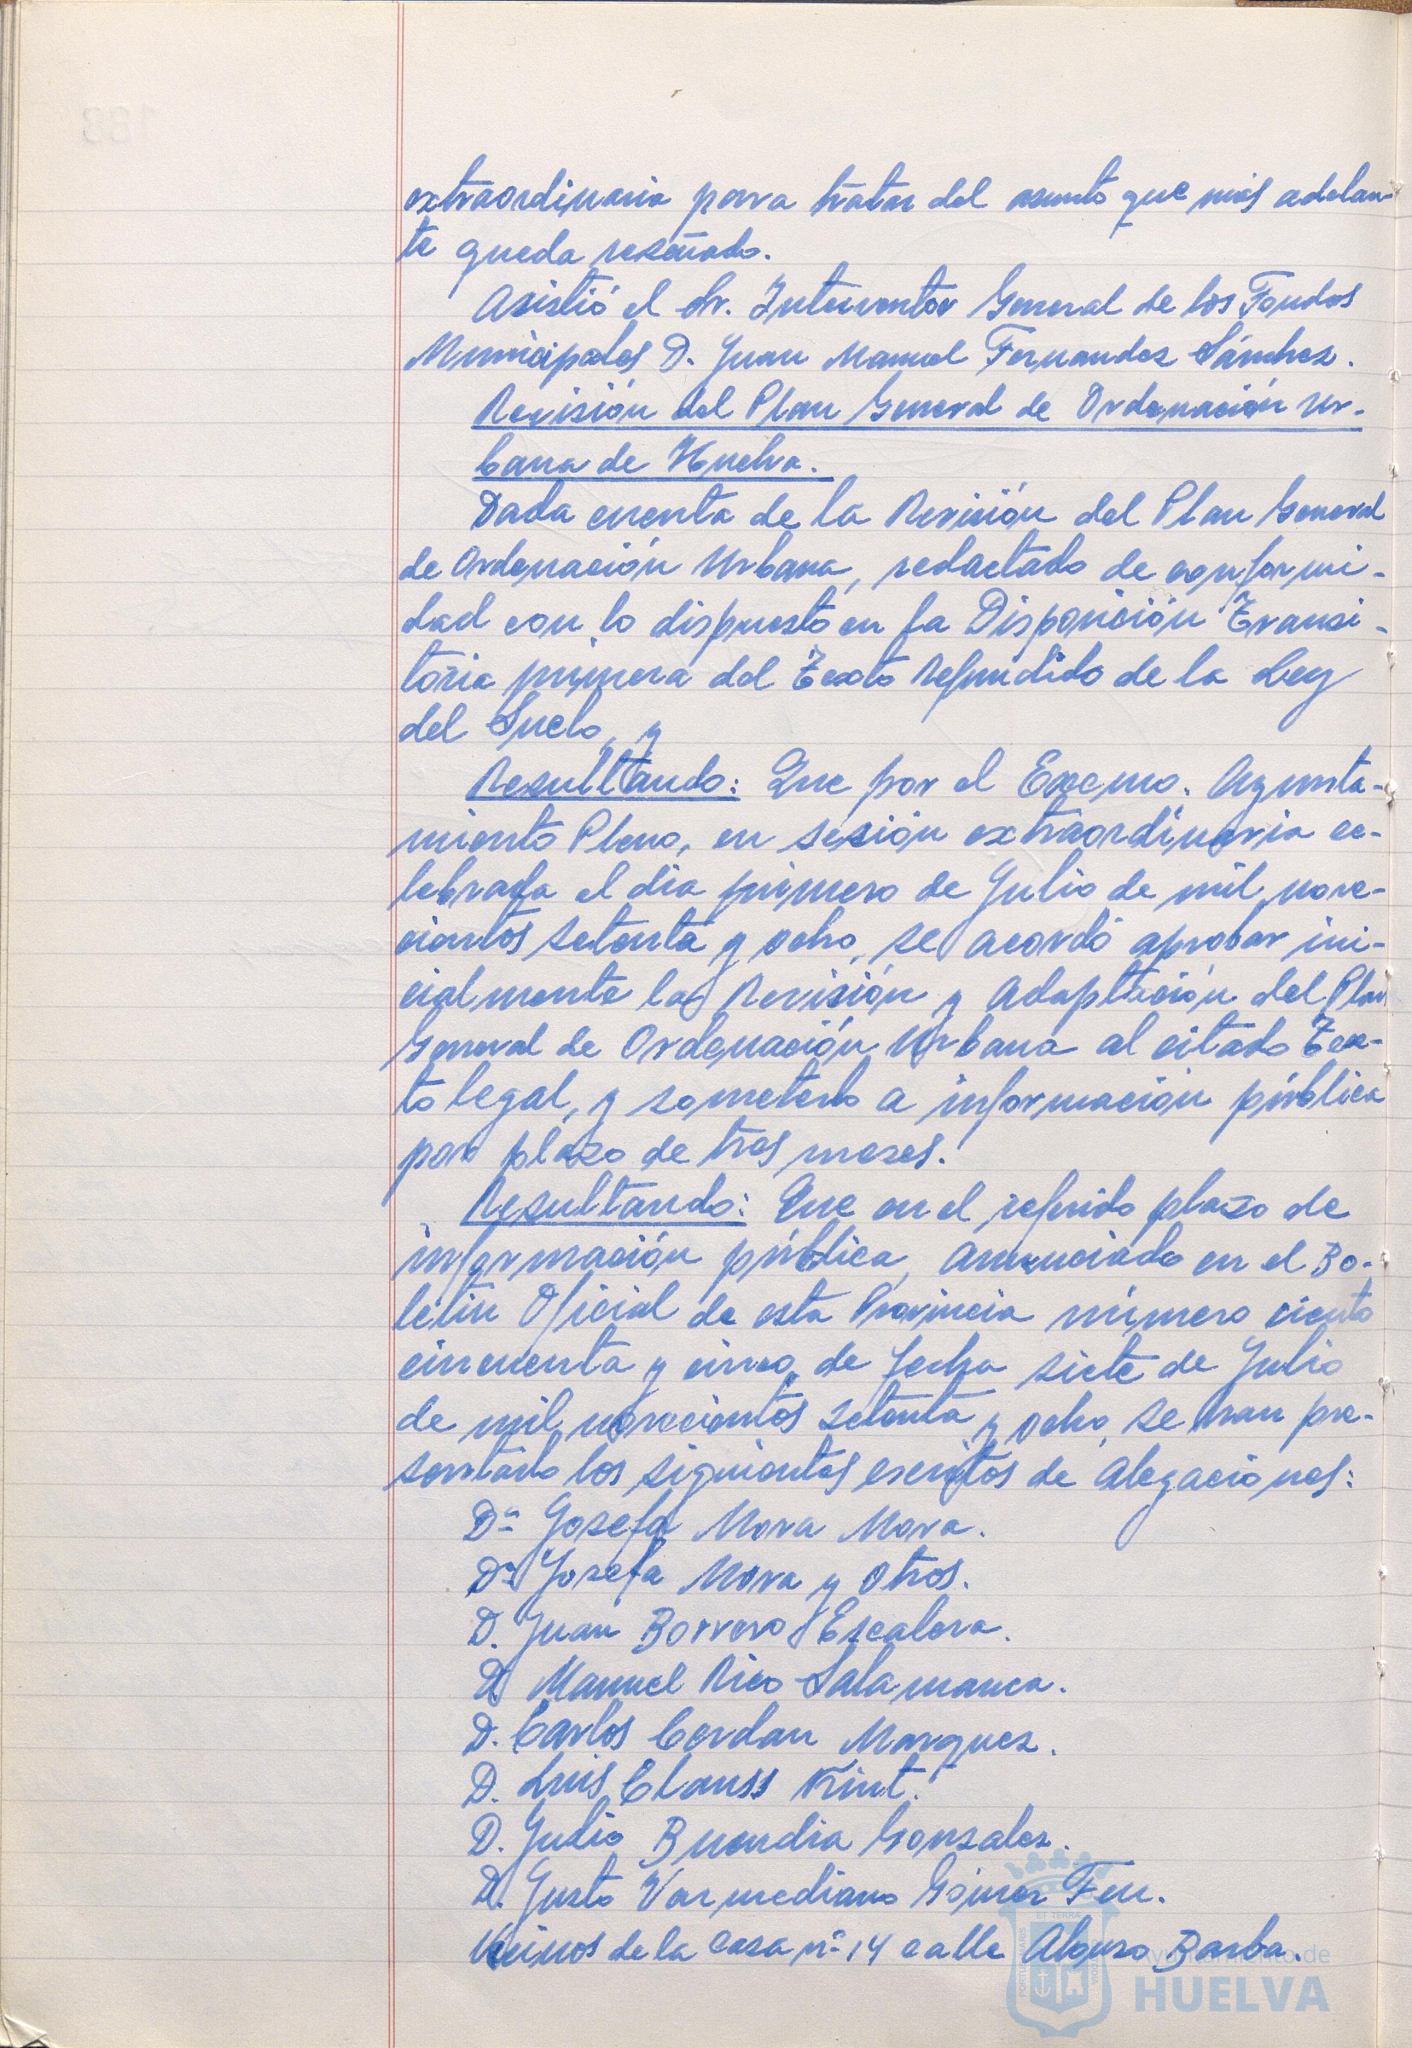 extraordinaria para tratar del asunto que más adelan-
te queda reseñado.
Asistió el Sr. Interventor General de los Fondos
Municipales D. Juan Manuel Fernandez Sánchez.
Revisión del Plan General de Ordenación Ur-
bana de Huelva.
Dada cuenta de la Revisión del Plan General
de Ordenación Urbana, redactado de conformi-
dad con lo dispuesto en la Disposición Transi-
toria primera del Texto Refundido de la Ley
del Suelo, y
Resultando: Que por el Excmo. Ayunta-
miento Pleno, en sesión extraordinaria ce-
lebrada el dia primero de Julio de mil nove-
cientos setenta y ocho, se acordó aprobar ini-
cialmente la Revisión y Adaptación del Plan
General de Ordenación Urbana al citado Tex-
to legal, y someterlo a información pública
por plazo de tres meses.
Resultando: Que en el referido plazo de
información pública, anunciado en el Bo-
letin Oficial de esta Provincia número ciento
cincuenta y cinco, de fecha siete de Julio
de mil novecientos setenta y ocho, se han pre-
sentado los siguientes escritos de alegaciones:
Dª Josefa Mora Mora.
Dª Josefa Mora y otros.
D. Juan Borrero Escalera.
D. Manuel Rico Salamanca.
D. Carlos Cordan Marquez.
D. Luis Clauss Kint.
D. Julio Buendia Gonzalez.
D. Justo Vanmediano Gómez Feu.
Vecinos de la casa nº 14 calle Alonso Barba.
Ayuntamiento de
HUELVA